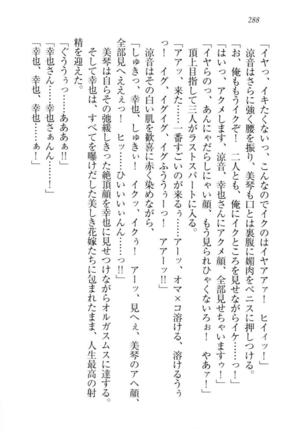 288
「イヤっ、イキたくないっっ、こんなのでイクのはイヤアアァ！　ヒイィィ！」
涼音はさらに強く腰を振り、美琴も口とは裏腹に媚肉をペニスに押しつける。
「お、俺ももうイクぞ！　二人とも、俺にイクところを見せながらイケーっ！」
「はいっ、アクメします、涼音、幸也さんにアクメ顔、全部見せちゃいますうっ！」
「イヤらのっ、あんにゃだらしにゃい顔、もう見られひゃくないろぉ！　やあァ！」
頂上目指して三人がラストスパートに入る。
「アアッ、来た……一番すごいのが来るぅ……アアッ、オマ×コ溶ける、溶けるうぅっ！　イグ、イグイグ、イグふううーっ！　アアーッ！！」
涼音はその白い肌を歓喜に赤く染めながら、
「しゅきっ、幸也、しゅきぃ！　イクッ、イクぅ！　アーッ、見へぇ、美琴のアヘ顔、全部見へええぇっ！　ヒッ……ひいいいぃんん……っ！！」
美琴は自らのその弛緩しきった絶頂顔を幸也に見せつけながらオルガスムスに達する。
そして幸也は、すべてを曝けだした美しき花嫁たちに包まれたまま、人生最高の射
精を迎えた。
「ぐううぅっ……あああぁっ！」
「幸也さん……幸也さぁんん……っ！」
「あーっ、幸也、幸也……ぁ！」